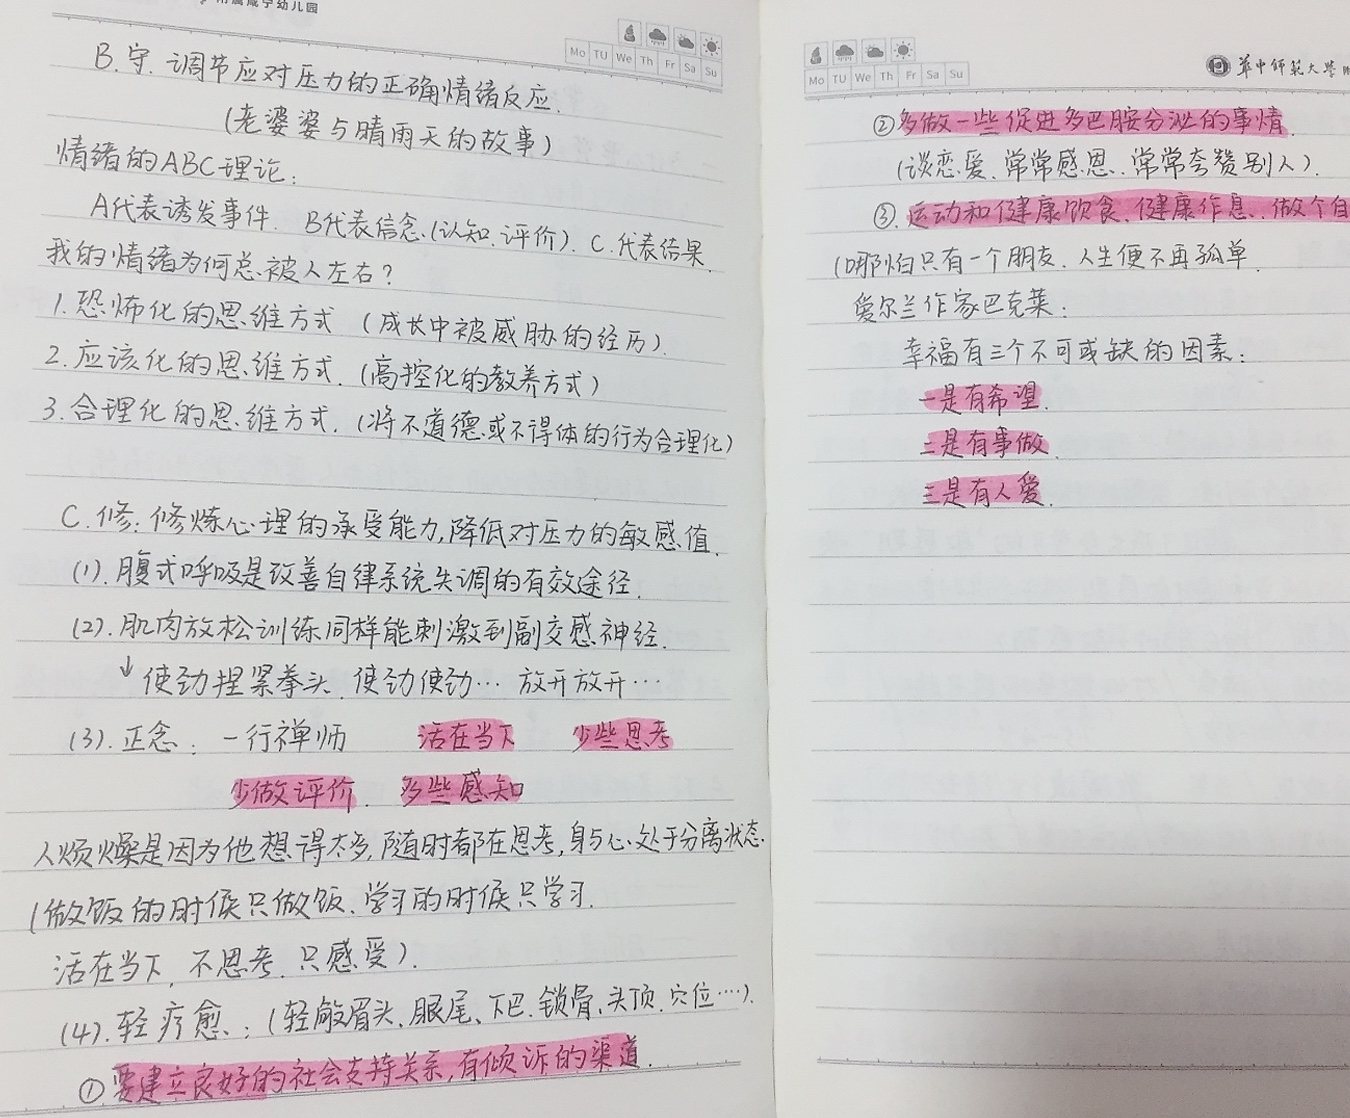 附属咸宁幼儿园
Mo TU We Th Fr Sa Su
B.守.调节应对压力的正确情绪反应.
(老婆婆与晴雨天的故事)
情绪的ABC理论:
A代表诱发事件. B代表信念.(认知.评价). C.代表结果.
我的情绪为何总被人左右?
1.恐怖化的思维方式 (成长中被威胁的经历).
2.应该化的思维方式.(高控化的教养方式)
3.合理化的思维方式.(将不道德或不得体的行为合理化)
C.修:修炼心理的承受能力,降低对压力的敏感值.
(1).腹式呼吸是改善自律系统失调的有效途径.
(2).肌肉放松训练同样能刺激到副交感神经.
↓使劲捏紧拳头.使劲使劲… 放开放开…
(3).正念:一行禅师 活在当下 少些思考
少做评价. 多些感知
人烦燥是因为他想得太多,随时都在思考,身与心处于分离状态.
(做饭的时候只做饭.学习的时候只学习.
活在当下.不思考.只感受).
(4).轻疗愈:(轻敲眉头、眼尾、下巴.锁骨、头顶.穴位…).
①要建立良好的社会支持关系,有倾诉的渠道.
Mo TU We Th Fr Sa Su
華中師範大學 附
②多做一些促进多巴胺分泌的事情.
(谈恋爱、常常感恩.常常夸赞别人).
③.运动和健康饮食、健康作息.做个自
(哪怕只有一个朋友.人生便不再孤单.
爱尔兰作家巴克莱:
幸福有三个不可或缺的因素:
一是有希望.
二是有事做.
三是有人爱.